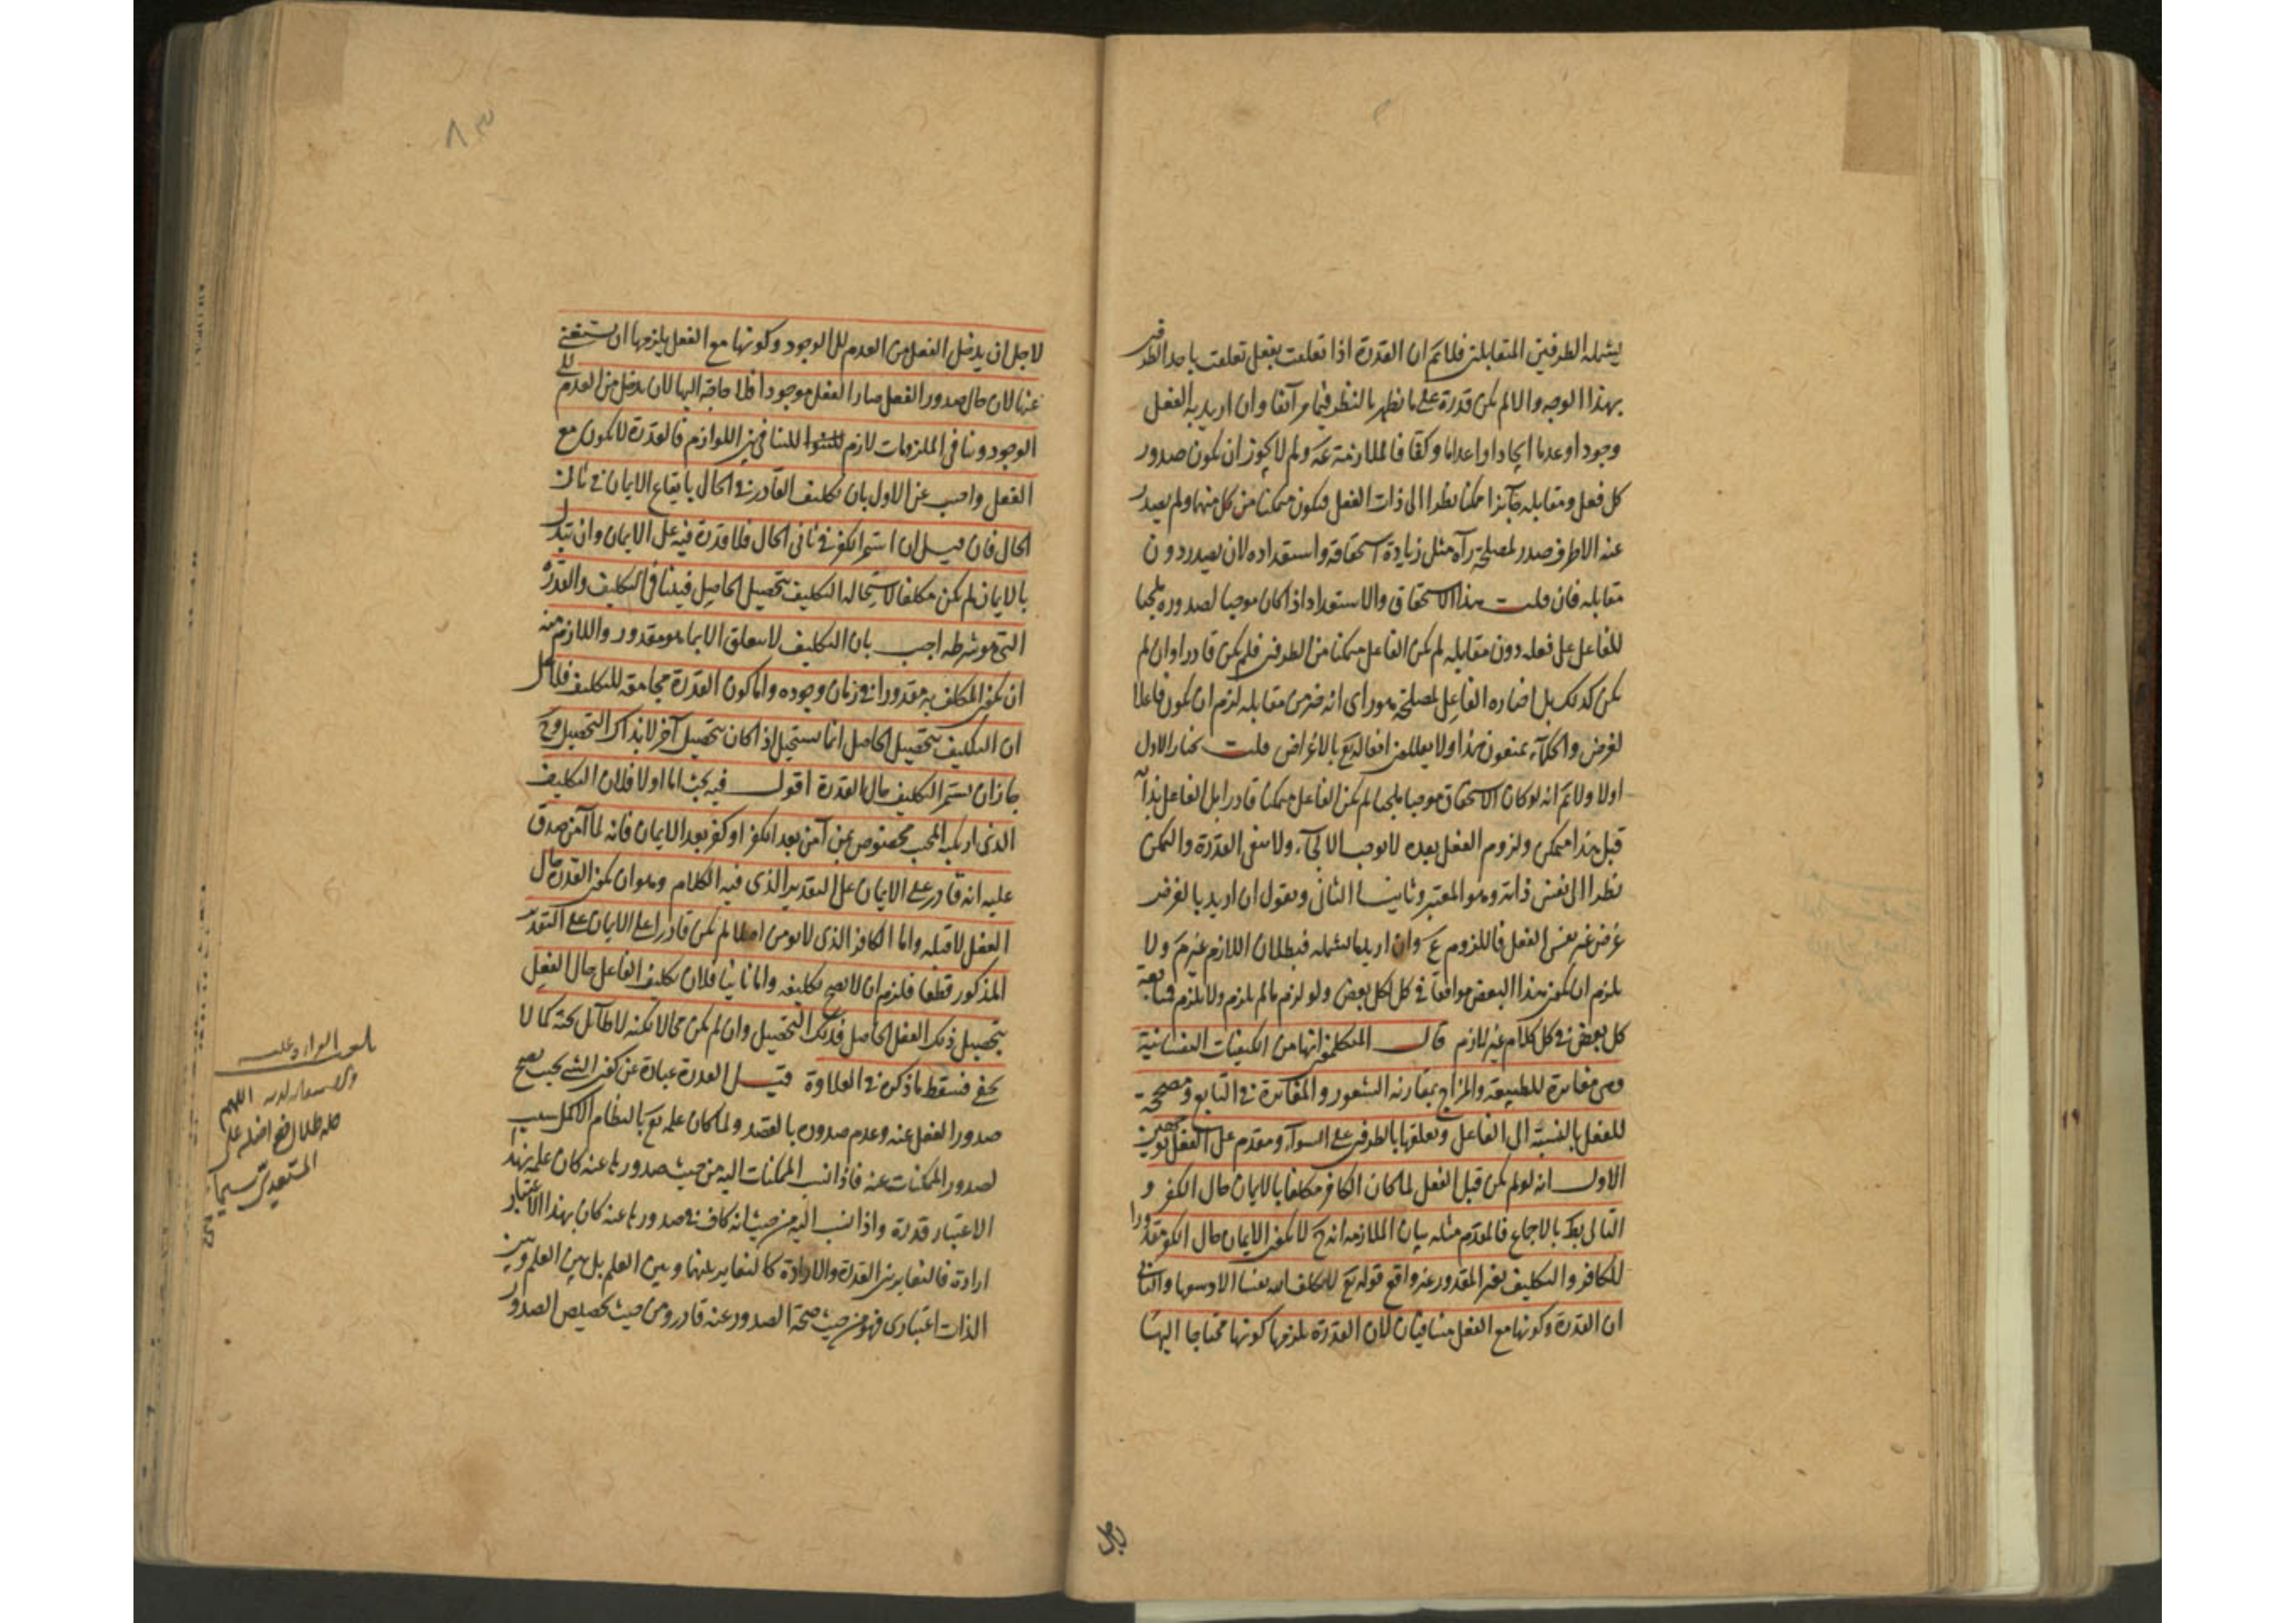 يشمله الطرفين المتقابلين فلا نم ان القدرة اذا تعلقت بفعل تعلقت باحد الطرفين
بهذا الوجه والا لم يكن قدرة على ما نظهر بالنظر فيما مر آنفا وان اريد به الفعل
وجودا وعدما ايجادا واعداما وكفا فالملازمة عه ولم لا يجوز ان يكون صدور
كل فعل ومقابله جآئزا ممكنا نظرا الى ذات الفعل فيكون متمكنا من كل منهما ولم يصدر
عنه الا طرف صدر لمصلحة رآه مثل زيادة استحقاقه واستعداده لان يصدر دون
مقابله فان قلت هذا الاستحقاق والاستعداد اذا كان موجبا لصدوره ملجيا
للفاعل على فعله دون مقابله لم يكن الفاعل متمكنا من الطرفين فلم يكن قادرا وان لم
يكن كذلك بل اختاره الفاعل لمصلحة هو راى انه خير من مقابله لزم ان يكون فاعلا
لغرض والحكمآء يمنعون هذا ولا يعللون افعاله تع بالاغراض قلت نختار الاول
اولا ولا نم انه لو كان الاستحقاق موجبا ملجيا لم يكن الفاعل متمكنا قادرا بل الفاعل بذاته
قبل هذا متمكن ولزوم الفعل بعده لا يوجب الالجآء ولا ينفى القدرة والتمكن
نظرا الى نفس ذاته وهو المعتبر وثانيا الثانى ونقول ان اريد بالغرض
غرض غير نفس الفعل فاللزوم ع وان اريد ما يشمله فبطلان اللازم غير نم ولا
يلزم ان يكون هذا البعض موافقا فى كل لكل بعض ولو لزم ما لم يلزم ولا يلزم متابعة
كل بعض فى كل كلام غير لازم قال المتكلمون انها من الكيفيات النفسانية
وهى مغايرة للطبيعة والمزاج بمقارنة الشعور والمغايرة فى التابع ومصححة
للفعل بالنسبة الى الفاعل وتعلقها بالطرفين على السوآء ومقدم على الفعل لوجهين
الاول انه لو لم يكن قبل الفعل لما كان الكافر مكلفا بالايمان حال الكفر و
التالى بط بالاجماع فالمقدم مثله بيان الملازمة انه ح لا يكون الايمان حال الكفر مقدورا
للكافر والتكليف بغير المقدور غير واقع قوله تع لا يكلف الله نفسا الا وسعها والثانى
ان القدرة وكونها مع الفعل متنافيان لان القدرة يلزمها كونها محتاجا اليها
لاجل
٨٣
لاجل ان يدخل الفعل من العدم الى الوجود وكونها مع الفعل يلزمها ان يستغنى
عنها لان حال صدور الفعل صار الفعل موجودا فلا حاجة اليها لان يدخل من العدم الى
الوجود وتنافى الملزومات لازم للتنافى بين اللوازم فالقدرة لا يكون مع
الفعل واجيب عن الاول بان تكليف القادر فى الحال بايقاع الايمان فى ثانى
الحال فان قيل ان استمر الكفر فى ثانى الحال فلا قدرة فيه على الايمان وان تبدل
بالايمان لم يكن مكلفا لاستحالة التكليف بتحصيل الحاصل فيتنافى التكليف والقدرة
التى هو شرطه اجيب بان التكليف لا يتعلق الا بما هو مقدور واللازم منه
ان يكون المكلف به مقدورا فى زمان وجوده واما كون القدرة مجامعة للتكليف فلا على
ان التكليف بتحصيل الحاصل انما يستحيل اذا كان بتحصيل آخر لا بذاك التحصيل وح
جاز ان يستمر التكليف حال القدرة اقول فيه بحث اما اولا فلان التكليف
الذى اريد المحب مخصوص بمن آمن بعد الكفر او كفر بعد الايمان فانه لما آمن صدق
عليه انه قادر على الايمان على التقدير الذى فيه الكلام وهو ان يكون القدرة حال
الفعل لا قبله واما الكافر الذى لا يؤمن اصلا لم يكن قادرا على الايمان على التقدير
المذكور قطعا فلزم ان لا يصح تكليفه واما ثانيا فلان تكليف الفاعل حال الفعل
بتحصيل ذلك الفعل الحاصل بذلك التحصيل وان لم يكن محالا لكنه لا طآئل تحته كما لا
يخفى فسقط ما ذكره فى العلاوة قيل القدرة عبارة عن كون الشئ بحيث يصح
صدور الفعل عنه وعدم صدوره بالقصد ولما كان علمه تع بالنظام الاكمل سببا
لصدور الممكنات عنه فاذا نسب الممكنات اليه من حيث صدورها عنه كان علمه بهذا
الاعتبار قدرة واذا نسب اليه من حيث انه كاف فى صدورها عنه كان بهذا الاعتبار
ارادة فالتغاير بين القدرة والارادة كالتغاير بينهما وبين العلم بل بين العلم وبين
الذات اعتبارى فهو من حيث صحة الصدور عنه قادر ومن حيث تخصيص الصدور